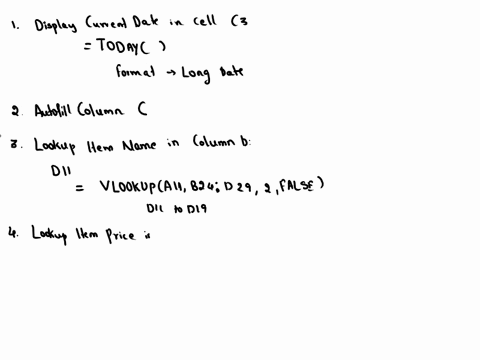 1. Display Current Date in cell C3
= TODAY( )
format → Long Date
2. Autofill Column C
3. Lookup Item Name in Column b:
D11
= VLOOKUP(A11, B24:D29, 2, FALSE)
D11 to D19
4. Lookup Item Price is